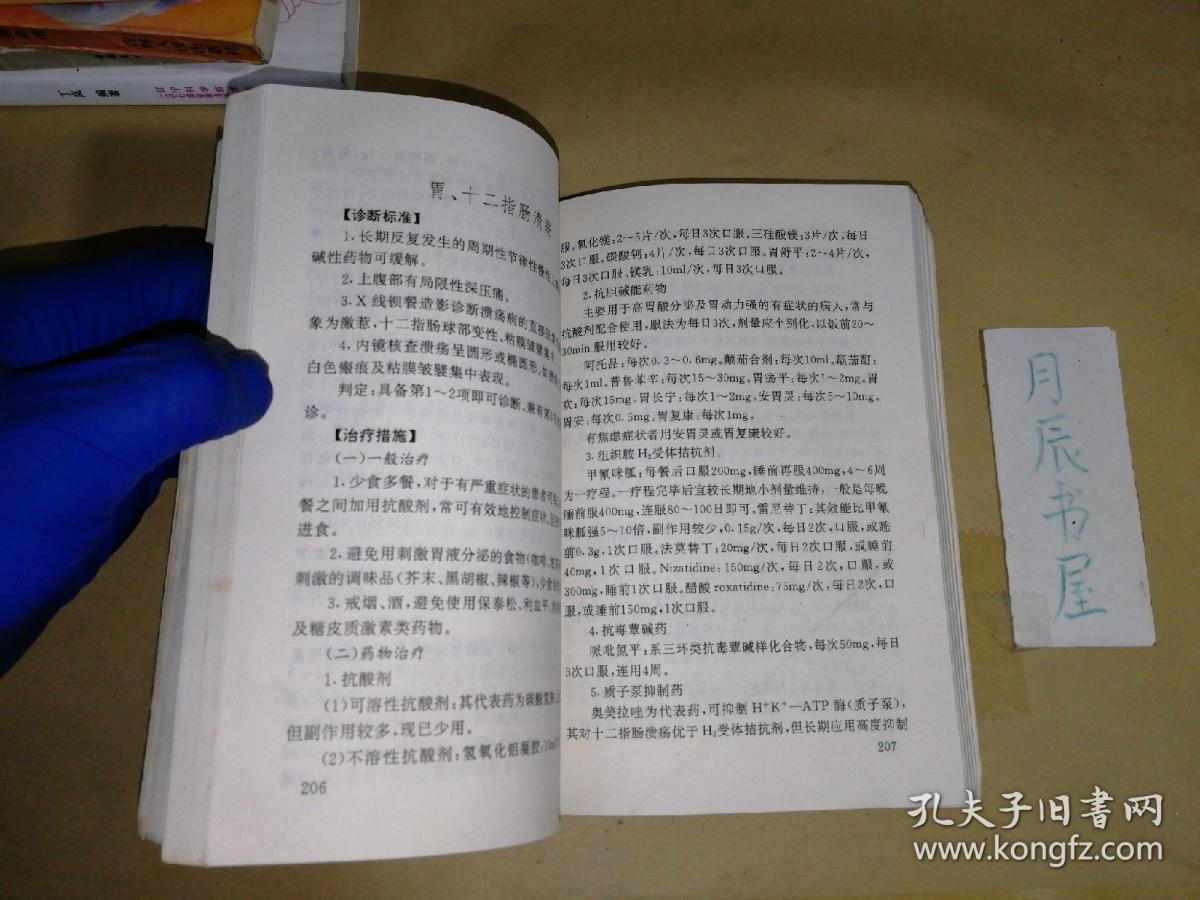 丁 编著
胃、十二指肠溃疡
【诊断标准】
1.长期反复发生的周期性节律性慢性上
碱性药物可缓解。
2.上腹部有局限性深压痛。
3.X线钡餐造影诊断溃疡病的直接征象
象为激惹,十二指肠球部变性、粘膜皱襞集
4.内镜核查溃疡呈圆形或椭圆形,
白色瘢痕及粘膜皱襞集中表现。
判定:具备第1~2项即可诊断,兼有第
诊。
【治疗措施】
(一)一般治疗
1.少食多餐,对于有严重症状的患者可
餐之间加用抗酸剂,常可有效地控制症状,
进食。
2.避免用刺激胃液分泌的食物(咖啡、
刺激的调味品(芥末、黑胡椒、辣椒等),少食
3.戒烟、酒,避免使用保泰松、利血平、
及糖皮质激素类药物。
(二)药物治疗
1.抗酸剂
(1)可溶性抗酸剂:其代表药为碳酸氢
但副作用较多,现已少用。
(2)不溶性抗酸剂:氢氧化铝凝胶:10ml
206
服。氧化镁:2~5片/次,每日3次口服。三硅酸镁:3片/次,每日
3次口服。碳酸钙:4片/次,每日3次口服。胃舒平:2~4片/次,
每日3次口服。镁乳:10ml/次,每日3次口服。
2.抗胆碱能药物
主要用于高胃酸分泌及胃动力强的有症状的病人,常与
抗酸剂配合使用,服法为每日3次,剂量应个别化,以饭前20~
30min服用较好。
阿托品:每次0.3~0.6mg。颠茄合剂:每次10ml,颠茄酊:
每次1ml。普鲁苯辛:每次15~30mg,胃疡平:每次1~2mg。胃
欢:每次15mg,胃长宁:每次1~2mg,安胃灵:每次5~10mg。
胃安:每次0.5mg。胃复康:每次1mg。
有焦虑症状者用安胃灵或胃复康较好。
3.组织胺H₂受体拮抗剂
甲氰咪胍:每餐后口服200mg,睡前再服400mg,4~6周
为一疗程。一疗程完毕后宜较长期地小剂量维持,一般是每晚
睡前服400mg,连服80~100日即可。雷尼替丁:其效能比甲氰
咪胍强5~10倍,副作用较少,0.15g/次,每日2次,口服,或睡
前0.3g,1次口服。法莫替丁:20mg/次,每日2次口服,或睡前
40mg,1次口服。Nizatidine:150mg/次,每日2次,口服,或
300mg,睡前1次口服。醋酸roxatidine:75mg/次,每日2次,口
服,或睡前150mg,1次口服。
4.抗毒蕈碱药
哌吡氮平:系三环类抗毒蕈碱样化合物,每次50mg,每日
3次口服,连用4周。
5.质子泵抑制药
奥美拉唑为代表药,可抑制H⁺K⁺—ATP酶(质子泵),
其对十二指肠溃疡优于H₂受体拮抗剂,但长期应用高度抑制
207
月辰书屋
孔夫子旧书网
www.kongfz.com